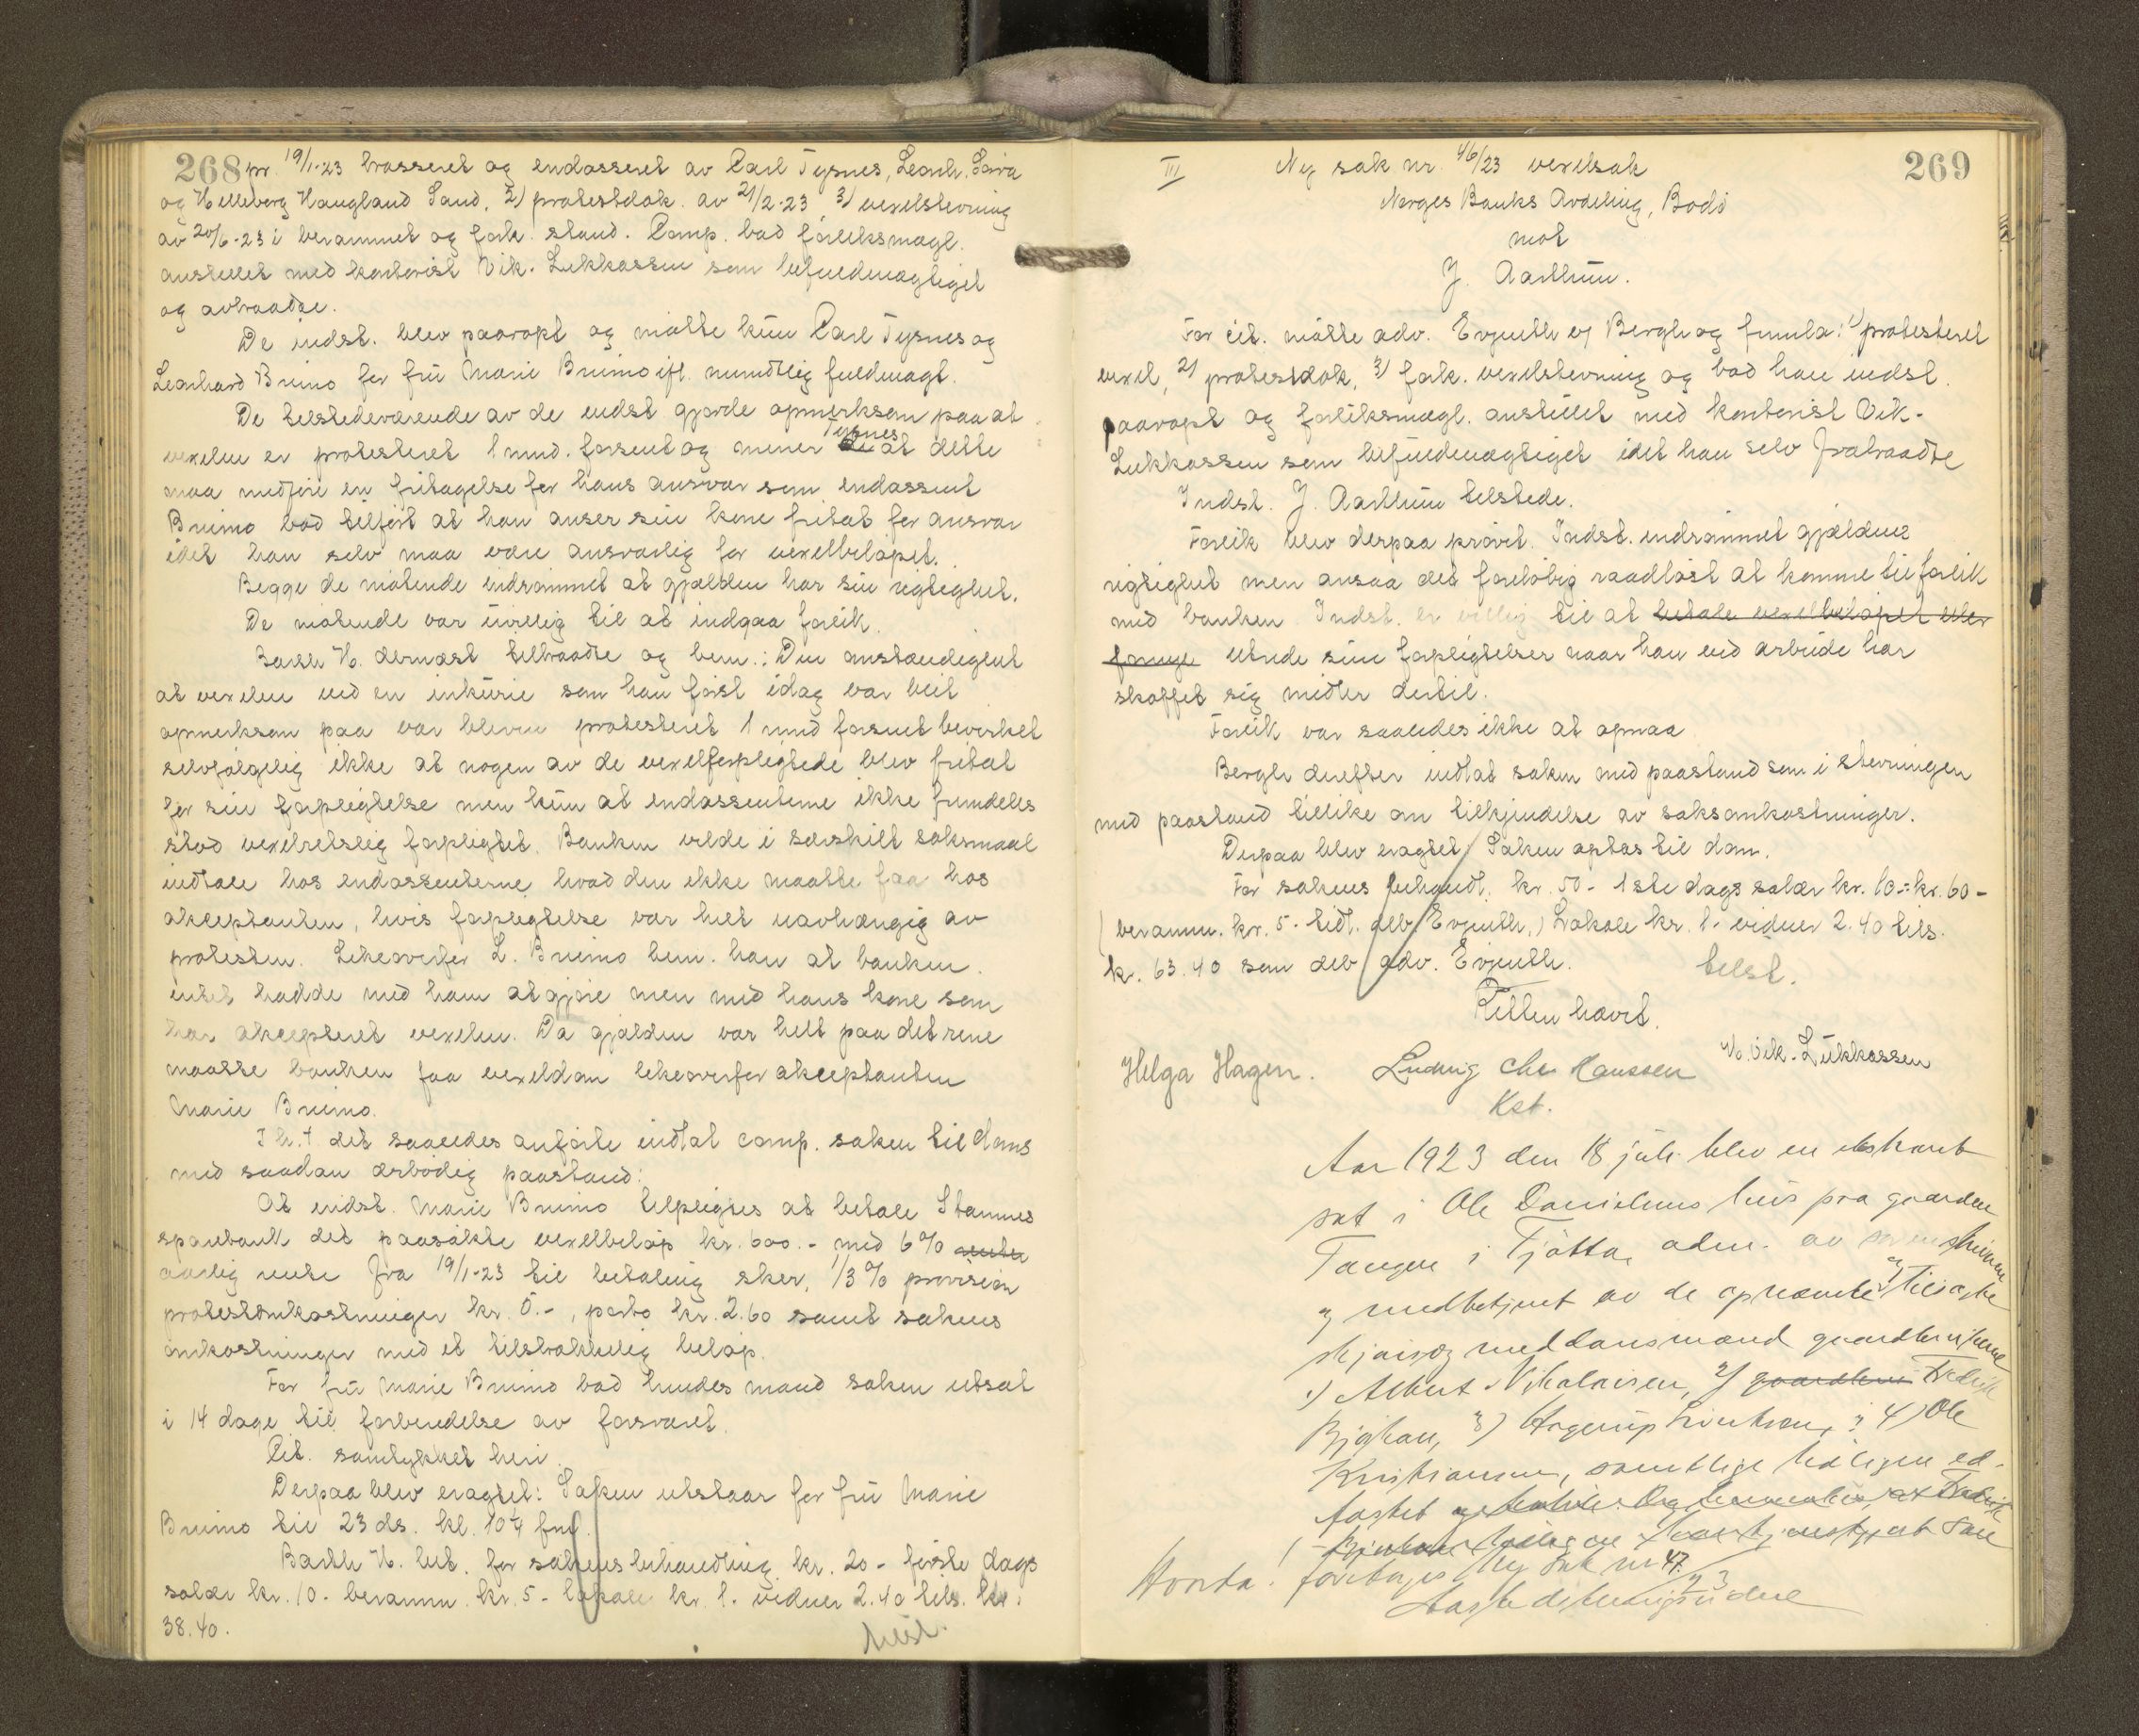 268 pr. 19/1-23 trasseret og endosseret av Carl Tysnes, Leonh.
og Helleberg Haugland Sand, 2) protestdok. av 21/2-23, 3) vexelstevning
av 20/6-23 i berammet og fork. stand. Comp. bad forliksmægl.
anstillet med kontorist Vik-Lukkassen som befuldmægtiget
og avtraadte.
De indst. blev paaropt og møtte kun Carl Tysnes og
Leonhard Brumo for fru Marie Brumo ifl. mundtlig fuldmagt.
De tilstedeværende av de indst gjorde opmerksom paa at
vexelen er protesteret 1 mnd. forsent og mener Tysnes at dette
maa medføre en fritagelse for hans ansvar som endossent
Brumo bad tilført at han anser sin kone fritat for ansvar
idet han selv maa være ansvarlig for vexelbeløpet.
Begge de møtende indrømmet at gjælden har sin rigtighet.
De møtende var uvillig til at indgaa forlik.
Barth H. dernæst tiltraadte og bem.: Den omstændighet
at vexelen ved en inkurie som han først idag var blit
opmerksom paa var bleven protesteret 1 mnd forsent bevirket
selvfølgelig ikke at nogen av de vexelforpligtede blev fritat
for sin forpligtelse men kun at endossenterne ikke fremdeles
stod vexelretslig forpligtet. Banken vilde i særskilt søksmaal
indtale hos endossenterne hvad den ikke maatte faa hos
akceptanten, hvis forpligtelse var helt uavhængig av
protesten. Likeoverfor L. Brumo bem. han at banken
intet hadde med ham at gjøre men med hans kone som
har akcepteret vexelen. Da gjælden var helt paa det rene
maatte banken faa vexeldom likeoverfor akceptanten
Marie Brumo.
I h. t det saaledes anførte indtal comp. saken til doms
med saadan ærbødig paastand:
At indst. Marie Brumo tilpligtes at betale Stamnes
sparebank det paasøkte vexelbeløp kr. 600.- med 6% renter
aarlig rente fra 19/1-23 til betaling sker, 1/3% provision
protestomkostninger kr. 5.-, porto kr. 2.60 samt sakens
omkostninger med et tilstrækkelig beløp.
For fru Marie Brumo bad hendes mand saken utsat
i 14 dage til forberedelse av forsvaret.
Cit. samtykket heri.
Derpaa blev eragtet: Saken utstaar for fru Marie
Brumo til 23 ds. kl. 10 1/4 fmd.
Barth H. bet. for sakens behandling kr. 20 - første dags
salær kr. 10. beramm. kr. 5 - lokale kr. 1. vidner 2.40 tils. kr.
38.40.
tilst.
269
III Ny sak nr. 46/23 vexelsak
Norges Banks Avdeling, Bodø
mot
J. Aarthun.
For cit. møtte adv. Evjenth v/ Bergh og freml: 1) protesteret
vexel, 2) protestdok, 3) fork. vexelstevning og bad han indst.
paaropt og forliksmægl. anstillet med kontorist Vik-
Lukkassen som befuldmægtiget idet han selv fratraadte
Indst. J. Aarthun tilstede.
Forlik blev derpaa prøvet. Indst. indrømmet gjældens
rigtighet men ansaa det foreløbig raadløst at komme til forlik
med banken. Indst. er villig til at betale vexelbeløpet eller
utrede sine forpligtelser naar han ved arbeide har
skaffet sig midler dertil.
Forlik var saaledes ikke at opnaa
Bergh derefter indtat saken med paastand som i stevningen
med paastand tillike om tilkjendelse av saksomkostninger.
Derpaa blev eragtet: Saken optas til dom.
For sakens behandl. kr. 50 - 1ste dags salær kr. 10.- kr. 60 -
(beramm. kr. 5. tidl. deb. Evjenth.) Lokale kr. 1. vidner 2.40 tils.
kr. 63.40 som deb adv. Evjenth. tilst.
Retten hævet.
Helga Hagen. Ludvig Chr Hanssen H. Vik-Lukkassen
Kst.
Aar 1923 den 18 juli blev en ekstraret
sat i Ole Danielsens hus paa gaarden
Tangen i Tjøtta, adm. av sorenskriveren
og medbetjent av de opnævnte og tilsagte
skjøns og meddomsmænd gaardbrukerne
1) Albert Nikolaisen, 2) gaardbr Fredrik
3) Angerup 4) Ole
Kristiansen, samtlige tidligere ed-
fæstet
foretages Ny sak nr 47/23